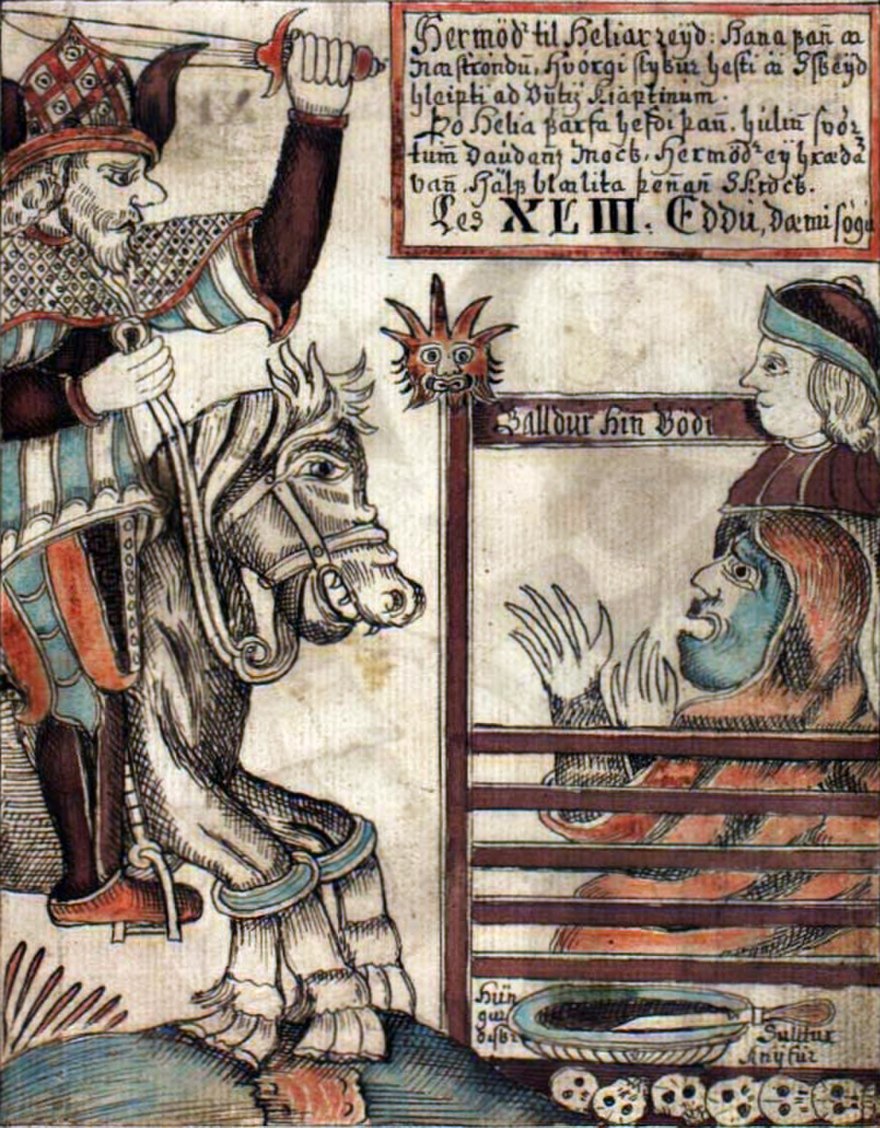 Hermöd' til Heliar reyd: Hana þañ æ
Næströndu, Hvörgi stybur hesti á Isbeyd
hleipti ad
Þo Helia þarfa hefdi þañ, huliñ svör
tum daudans Mock, Hermöd' ey hræda
vañ, Hálf blælita þeñañ Skrock.
Les XLIII. Eddu, Dæmi sögu
Balldur hiñ Gödi
Hün
Sulltur
knyfur